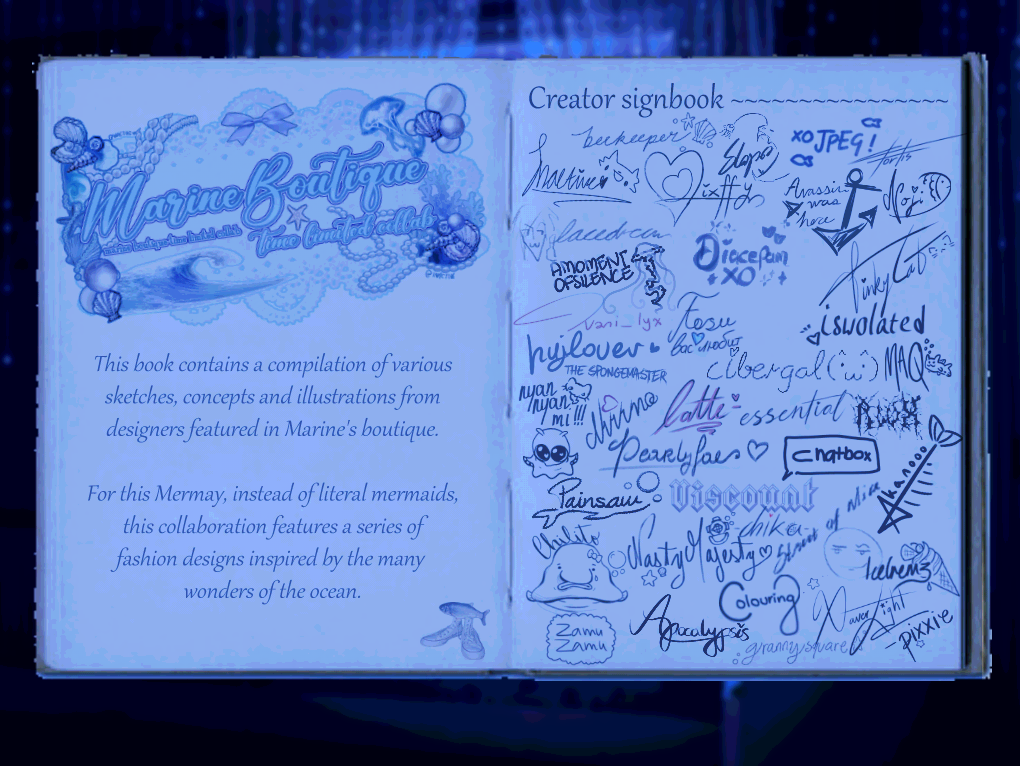 Marine Boutique
time limited collab
This book contains a compilation of various
sketches, concepts and illustrations from
designers featured in Marine's boutique.
For this Mermay, instead of literal mermaids,
this collaboration features a series of
fashion designs inspired by the many
wonders of the ocean.
Creator signbook ~~~~~~~~~~~~~~~~
beekeeper
xo JPEG!
Elope
Pixffy
Anassix
was
here
Noji
A MOMENT
OF SILENCE
Diacepam
XO
Pinky Cat
vani_lyx
Tosu
вас любит
iswolated
hujlover
THE SPONGEMASTER
cibergal(^'ω'^)
MAQ
nyan
nyan
mi!!!
latte-
essential
Pearlyfaes
chatbox
kanooo
Painsaw
Viscount
Chilito
Nasty Majesty
chika
Street of Mina
Colouring
Apocalypsis
PaverLight
-pixxie
Zamu
Zamu
grannysquare